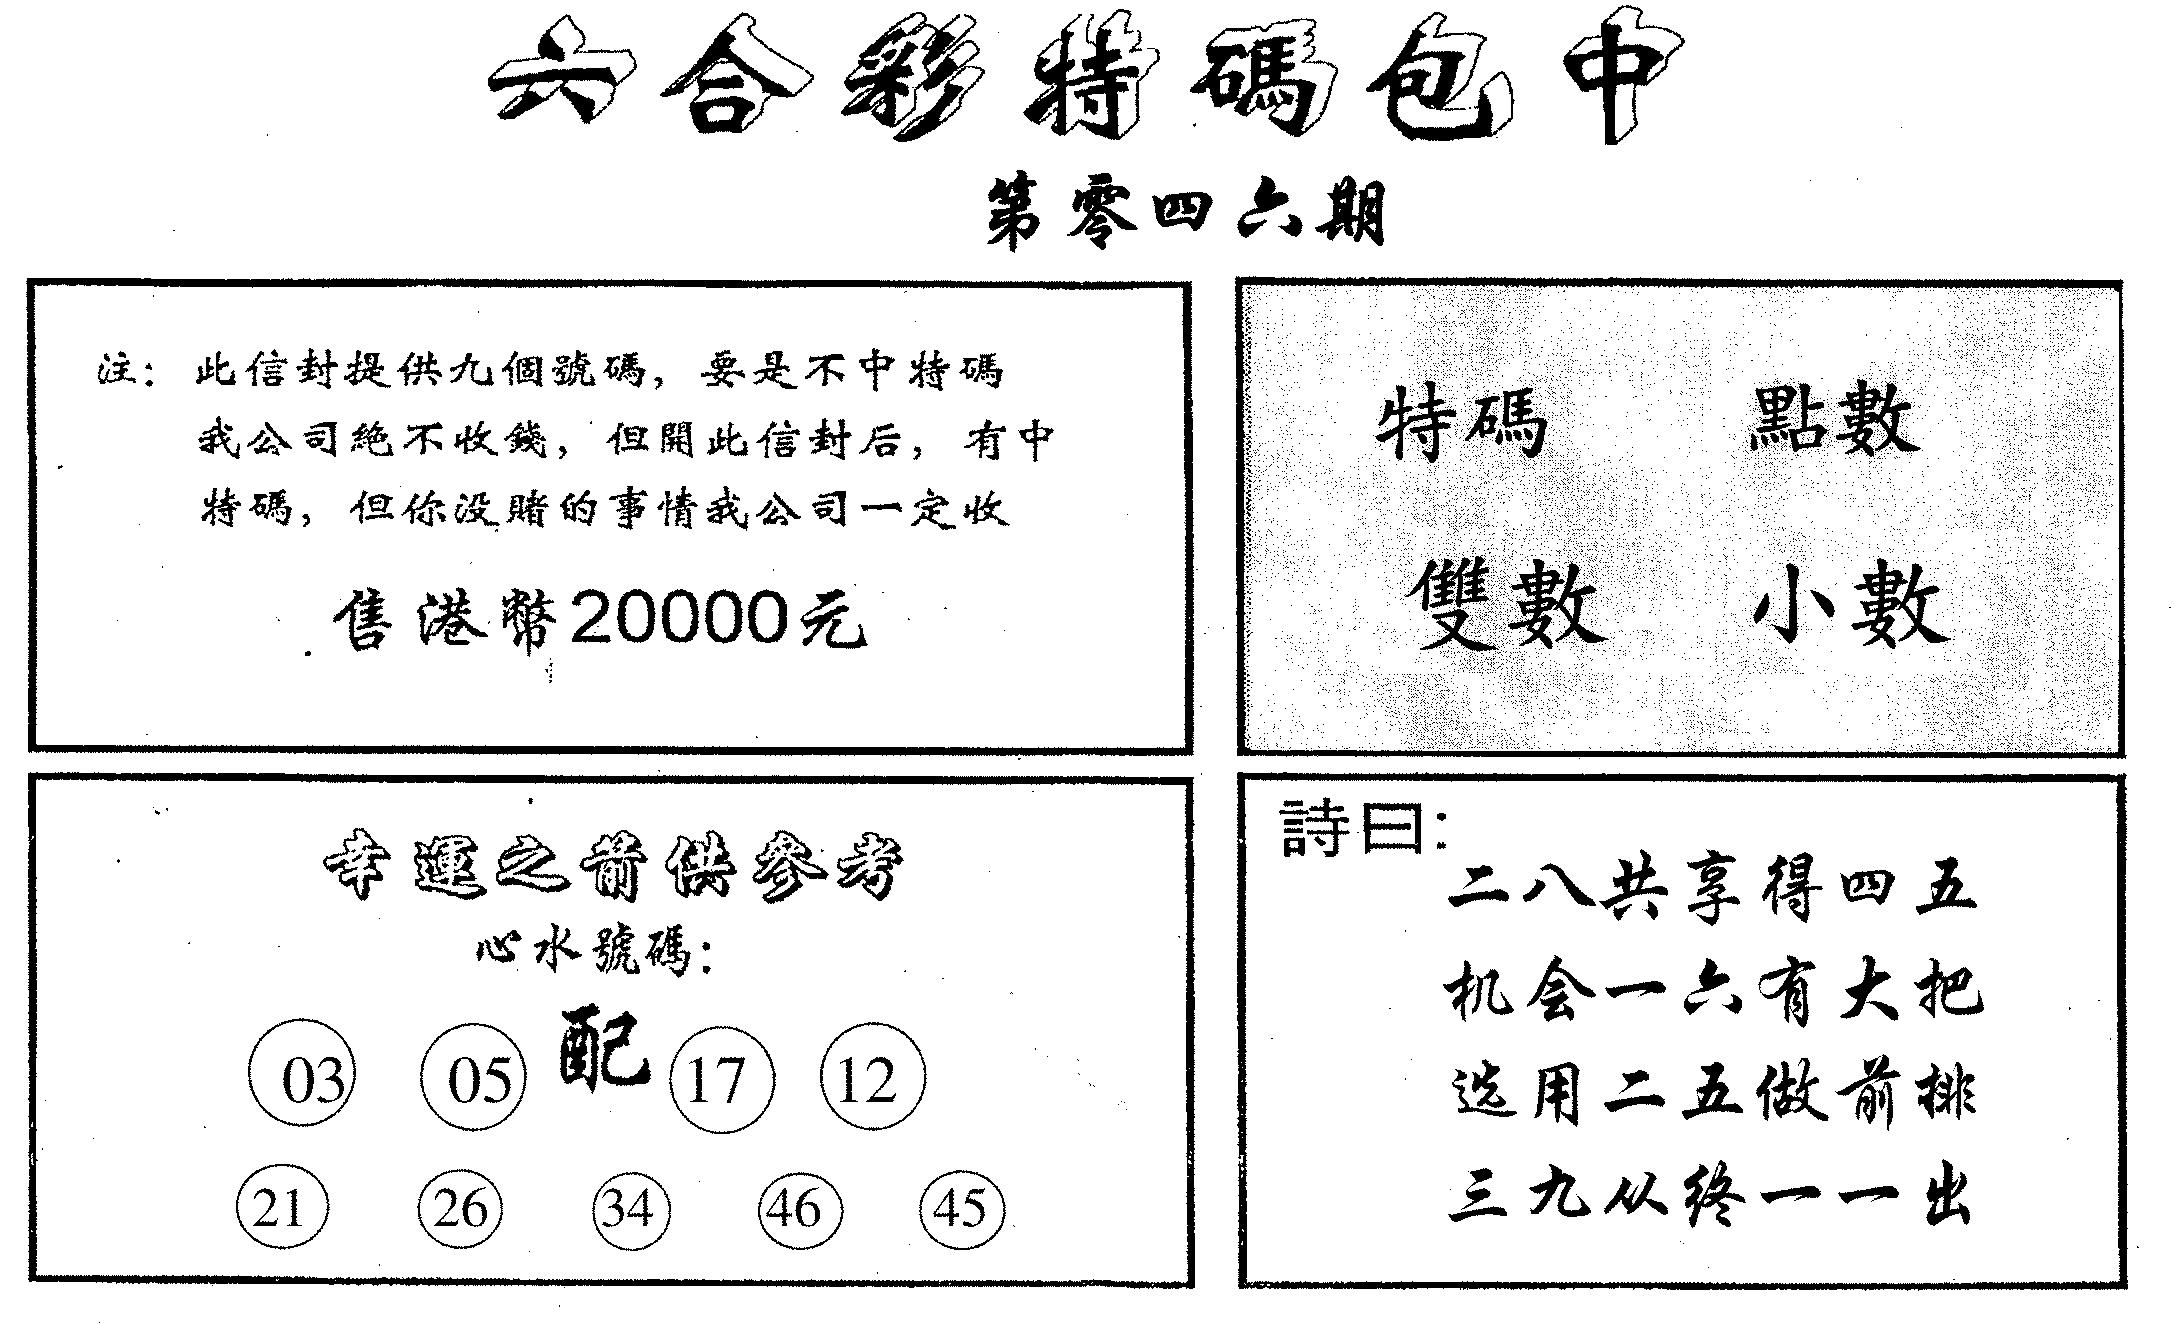 六合彩特碼包中
第零四六期
注：此信封提供九個號碼，要是不中特碼
我公司絕不收錢，但開此信封后，有中
特碼，但你没賭的事情我公司一定收
售港幣20000元
特碼 點數
雙數 小數
幸運之前供參考
心水號碼：
03 05 配 17 12
21 26 34 46 45
詩曰：
二八共享得四五
机会一六有大把
选用二五做前排
三九从终一一出